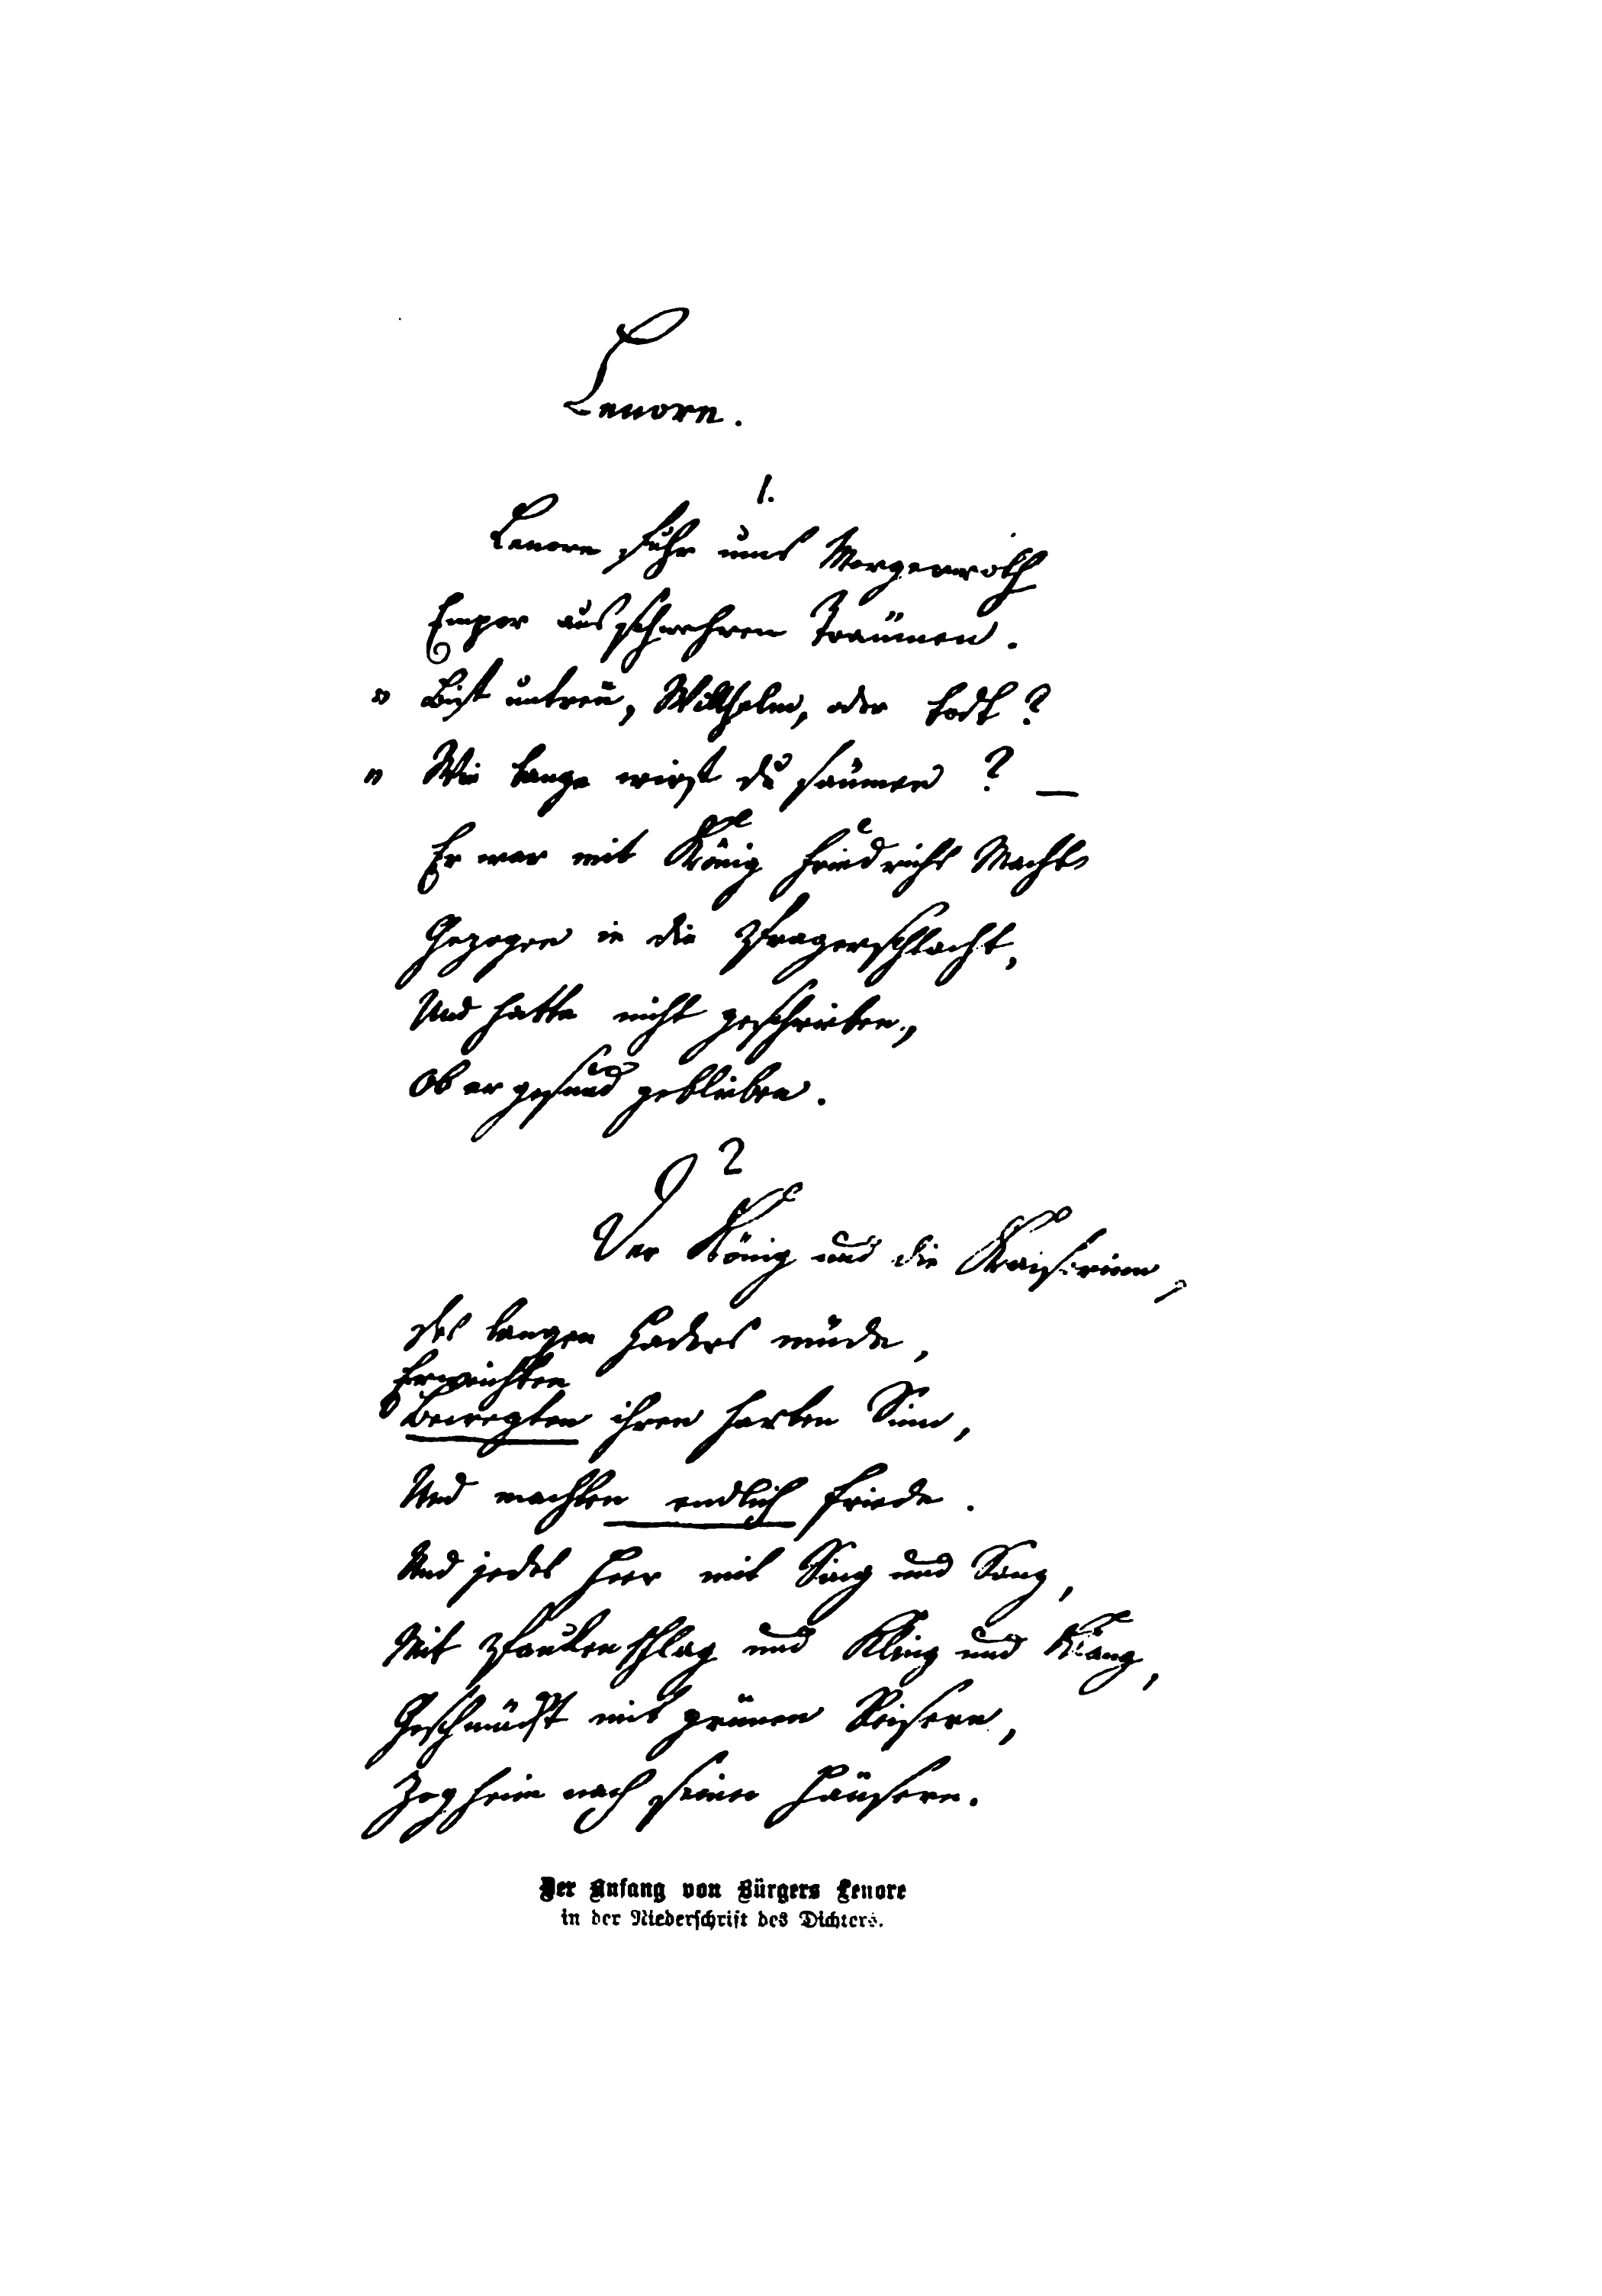 Lenore.
1.
Lenore fuhr ums Morgenroth
Empor aus schwehren Träumen.
" Bist untreü, Wilhelm, oder todt?
" Wie lange wirst du säumen? —
Er war mit König Friedrichs Macht
Gezogen in die Pragerschlacht,
Und hatte nicht geschrieben,
Ob er gesund geblieben.
2
Der König und die Kaiserinn,
Des langen Haders müde,
Erweichten
Bewegten ihren harten Sinn,
Und machten endlich Friede.
Und jedes Heer mit Sing und Sang,
Mit Paukenschlag und Kling und Klang,
Geschmückt mit grünen Reisern,
Zog heim nach seinen Häusern.
Der Anfang von Bürgers Lenore
in der Niederschrift des Dichters.